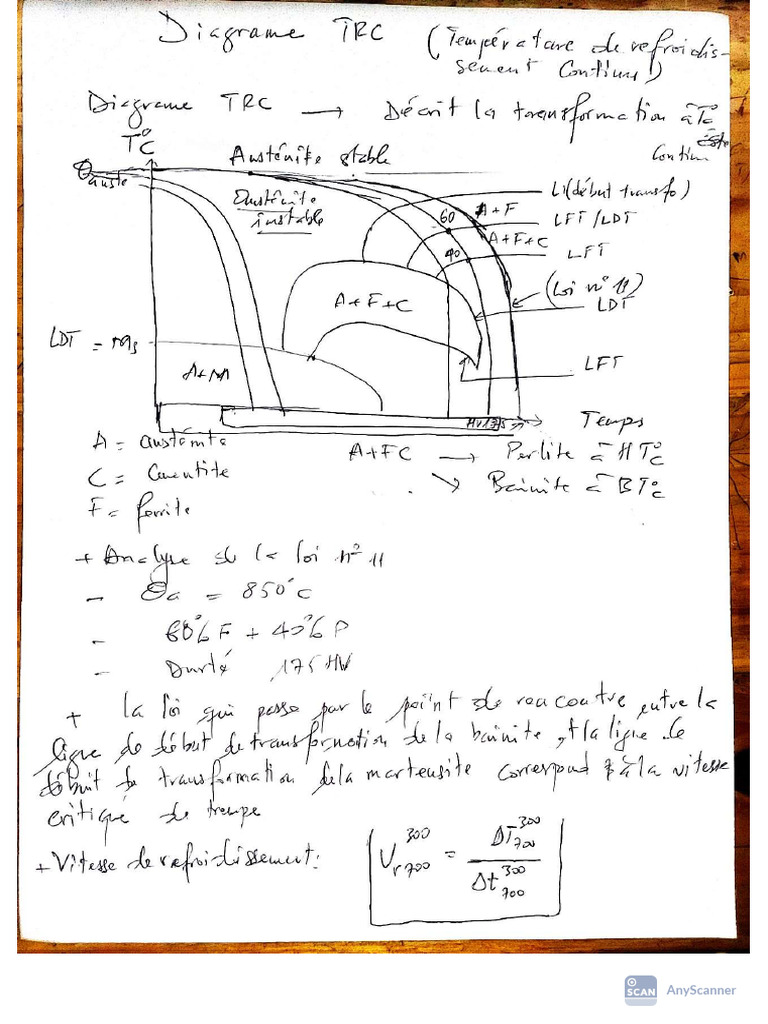 Diagrame TRC (Température de refroidis-
sement Continus)
Diagrame TRC → Décrit la transformation à T°c
Continu
T°C
Austénite stable
θauste
Austénite
instable
LI (début transfo)
A+F
60
LFT/LDT
A+F+C
40
LFT
(Loi n° 11)
A+F+C
LDT
LDT = Ms
LFT
A+M
HV175
Temps
A = austénite
A+FC → Perlite à HT°c
C = Cementite
↘ Bainite à BT°c
F = ferrite
+ Analyse de la loi n° 11
- θa = 850°C
- 60% F + 40% P
- Durté 175 HV
+ la loi qui passe par le point de rencontre entre la
ligne de début de transformation de la bainite et la ligne de
début de transformation de la martensite correspond à la vitesse
critique de trempe
+ Vitesse de refroidissement: V r700 300 = ΔT 700 300 / Δt 700 300
SCAN AnyScanner